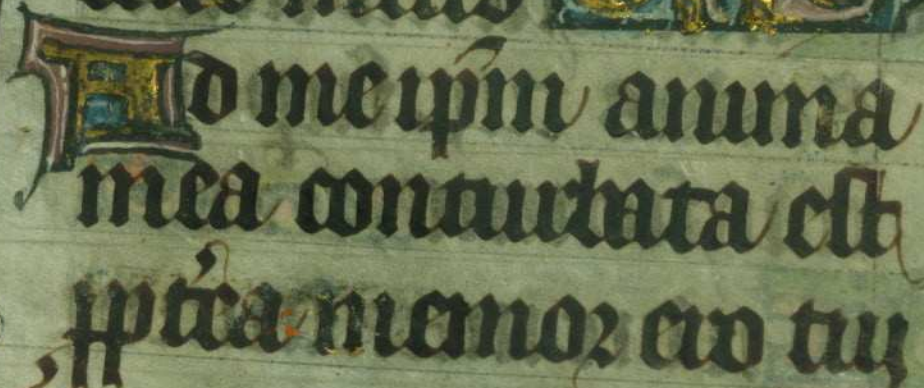 Ad me ip̅m anima
mea conturbata est
ꝓpt̾ea memor ero tui